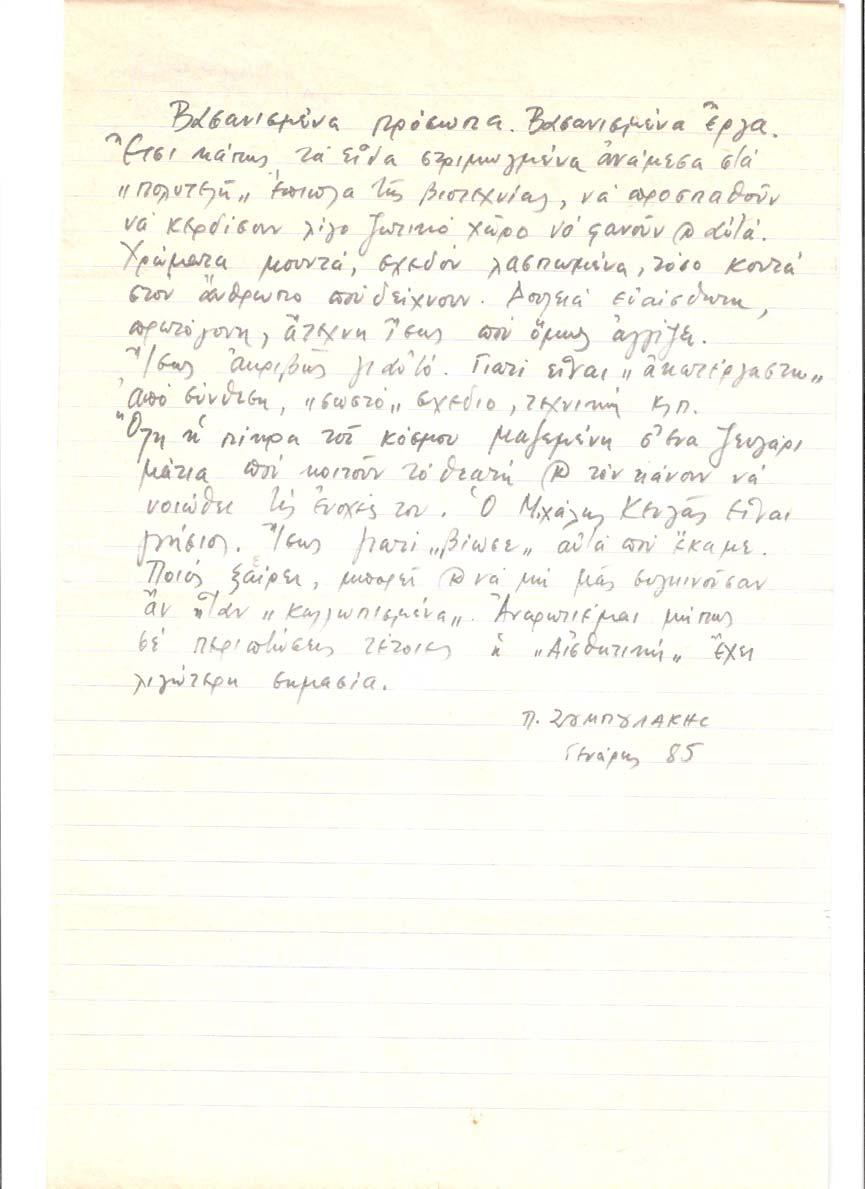 Βασανισμένα πρόσωπα. Βασανισμένα ἔργα.
Ἔτσι κάπως τά εἶδα στριμωγμένα ἀνάμεσα στά
"πολυτελῆ" ἔπιπλα τῆς βιοτεχνίας, νά προσπαθοῦν
νά κερδίσουν λίγο ζωτικό χῶρο νά φανοῦν κ αὐτά.
Χρώματα μουντά, σχεδόν λασπωμένα, τόσο κοντά
στον ἄνθρωπο πού δείχνουν. Δουλειά εὐαίσθητη,
πρωτόγονη, ἄτεχνη ἴσως πού ὅμως ἀγγίζει.
Ἴσως ἀκριβῶς γι αὐτό. Γιατί εἶναι "ἀκατέργαστη"
ἀπό σύνθεση, "σωστό" σχέδιο, τεχνική κ.π.
Ὅλη ἡ πίκρα τοῦ κόσμου μαζεμένη σ' ἕνα ζευγάρι
μάτια πού κοιτοῦν τό θεατή κ τόν κάνουν νά
νοιώθει τίς ἐνοχές του. Ὁ Μιχάλης Κευγᾶς εἶναι
γνήσιος. Ἴσως γιατί "βίωσε" αὐτά πού ἔκαμε.
Ποιός ξαίρει, μπορεῖ κ νά μή μᾶς συγκινοῦσαν
ἄν ἦταν "καλλωπισμένα". Ἀναρωτιέμαι μήπως
σέ περιπτώσεις τέτοιες ἡ "Αἰσθητική" ἔχει
λιγώτερη σημασία.
Π. ΖΟΥΜΠΟΥΛΑΚΗΣ
Γενάρης 85